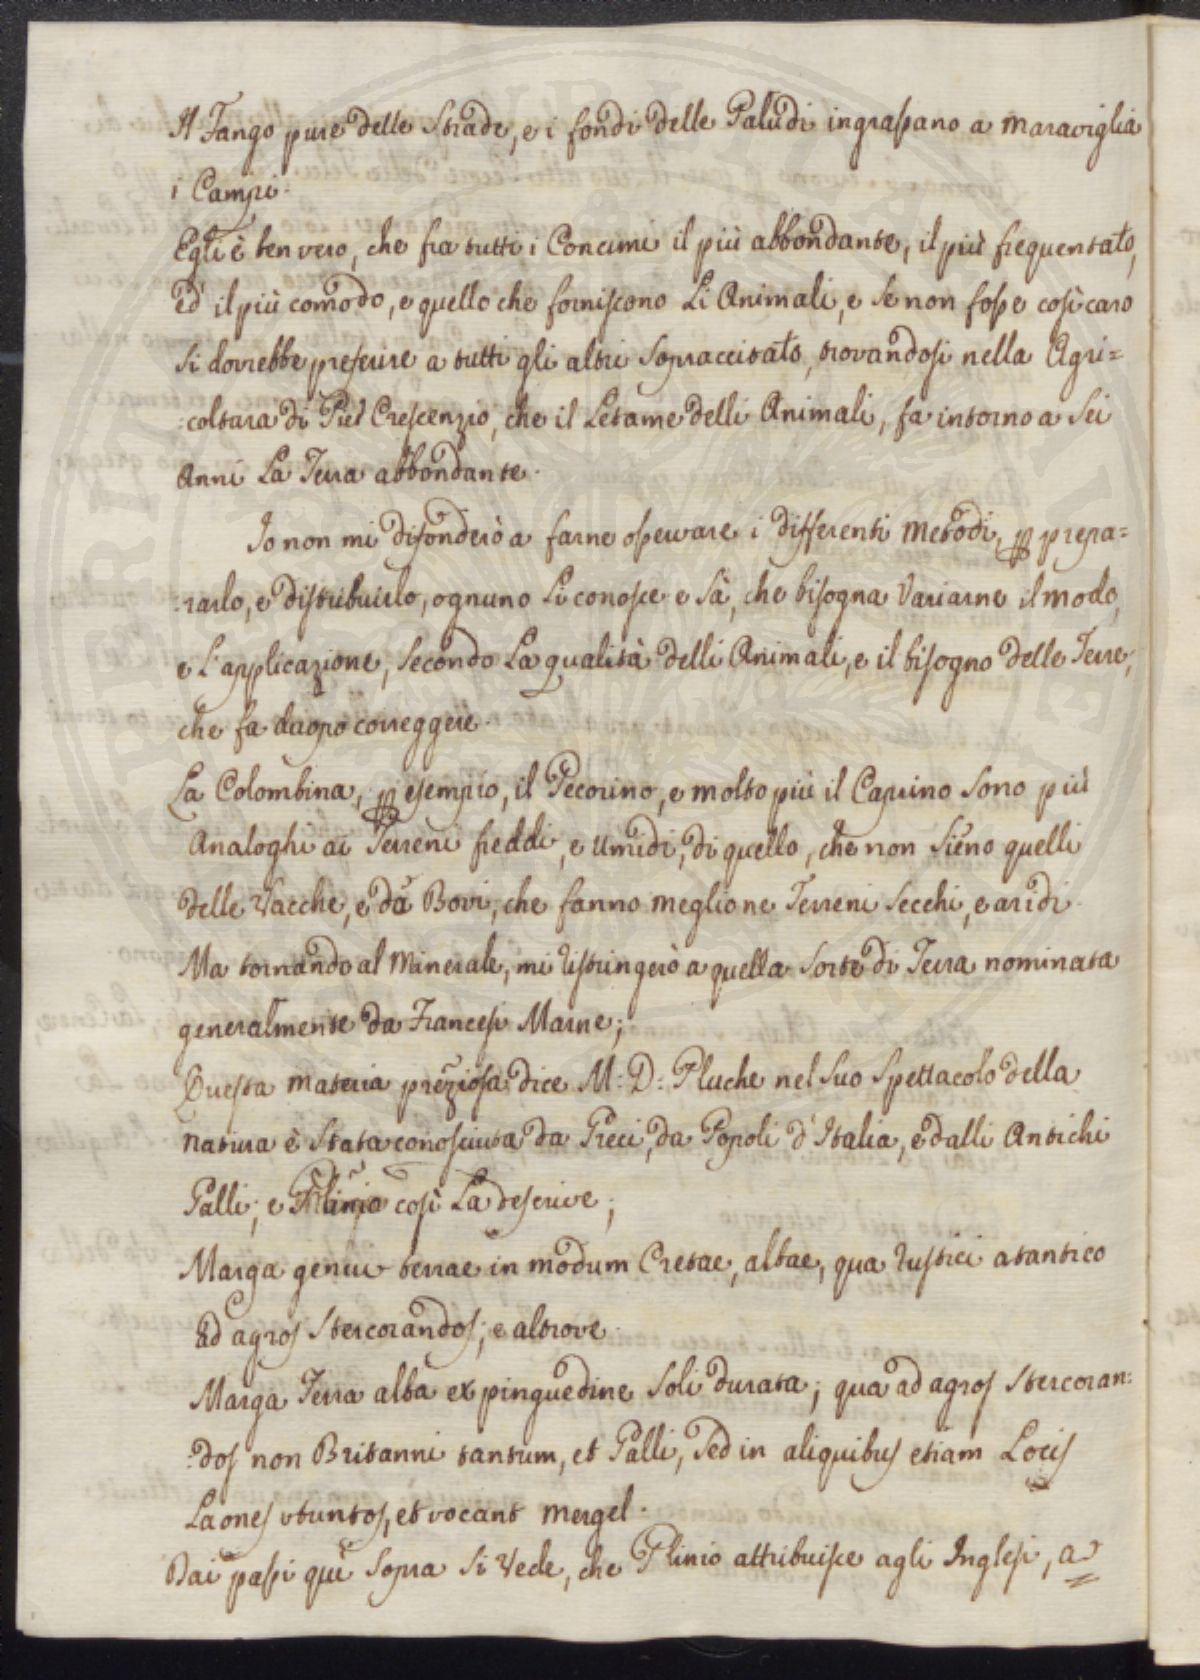 Il Fango pure delle Strade, e i fondi delle Paludi ingrassano a maraviglia
i Campi.
Egli è ben vero, che fra tutti i Concimi il più abbondante, il più frequentato,
ed il più comodo, e quello che forniscono Li Animali, e se non fosse così caro
si dovrebbe preferire a tutti gli altri Sopraccitato, trovandosi nella Agri=
:coltura di Piel Crescenzio, che il Letame delli Animali, fa intorno a Sei
Anni La Terra abbondante.
Io non mi difonderò a farne osservare i differenti Metodi, p prepa=
:rarlo, e distribuirlo, ognuno Li conosce e Sà, che bisogna Variarne il modo,
e L'applicazione, Secondo La qualità delli Animali, e il bisogno delle Terre,
che fa dàopo correggere.
La Colombina, p esempio, il Pecorino, e molto più il Caprino Sono più
Analoghi ai Terreni freddi, e Umidi, di quello, che non Sieno quelli
delle Vacche, e dà Bovi, che fanno meglio ne Terreni Secchi, e aridi.
Ma tornando al Minerale, mi ristringerò a quella Sorte di Terra nominata
generalmente da Francesi Marne;
Questa materia preziosa dice M: D: Pluche nel Suo Spettacolo della
natura è Stata conosciuta da Greci, da Popoli d'Italia, e dalli Antichi
Galli; e Plinio così La descrive;
Marga genui terrae in modum Cretae, albae, qua rustici atantico
ad agros Stercorandos; e altrove.
Marga Terra alba ex pinguedine Soli durata; qua ad agros Stercoran:
:dos non Britanni tantum, et Galli, Sed in aliquibus etiam Locis
Laones utuntos, et vocant mergel.
Dai passi quì Sopra Si Vede, che Plinio attribuisce agli Inglesi, a